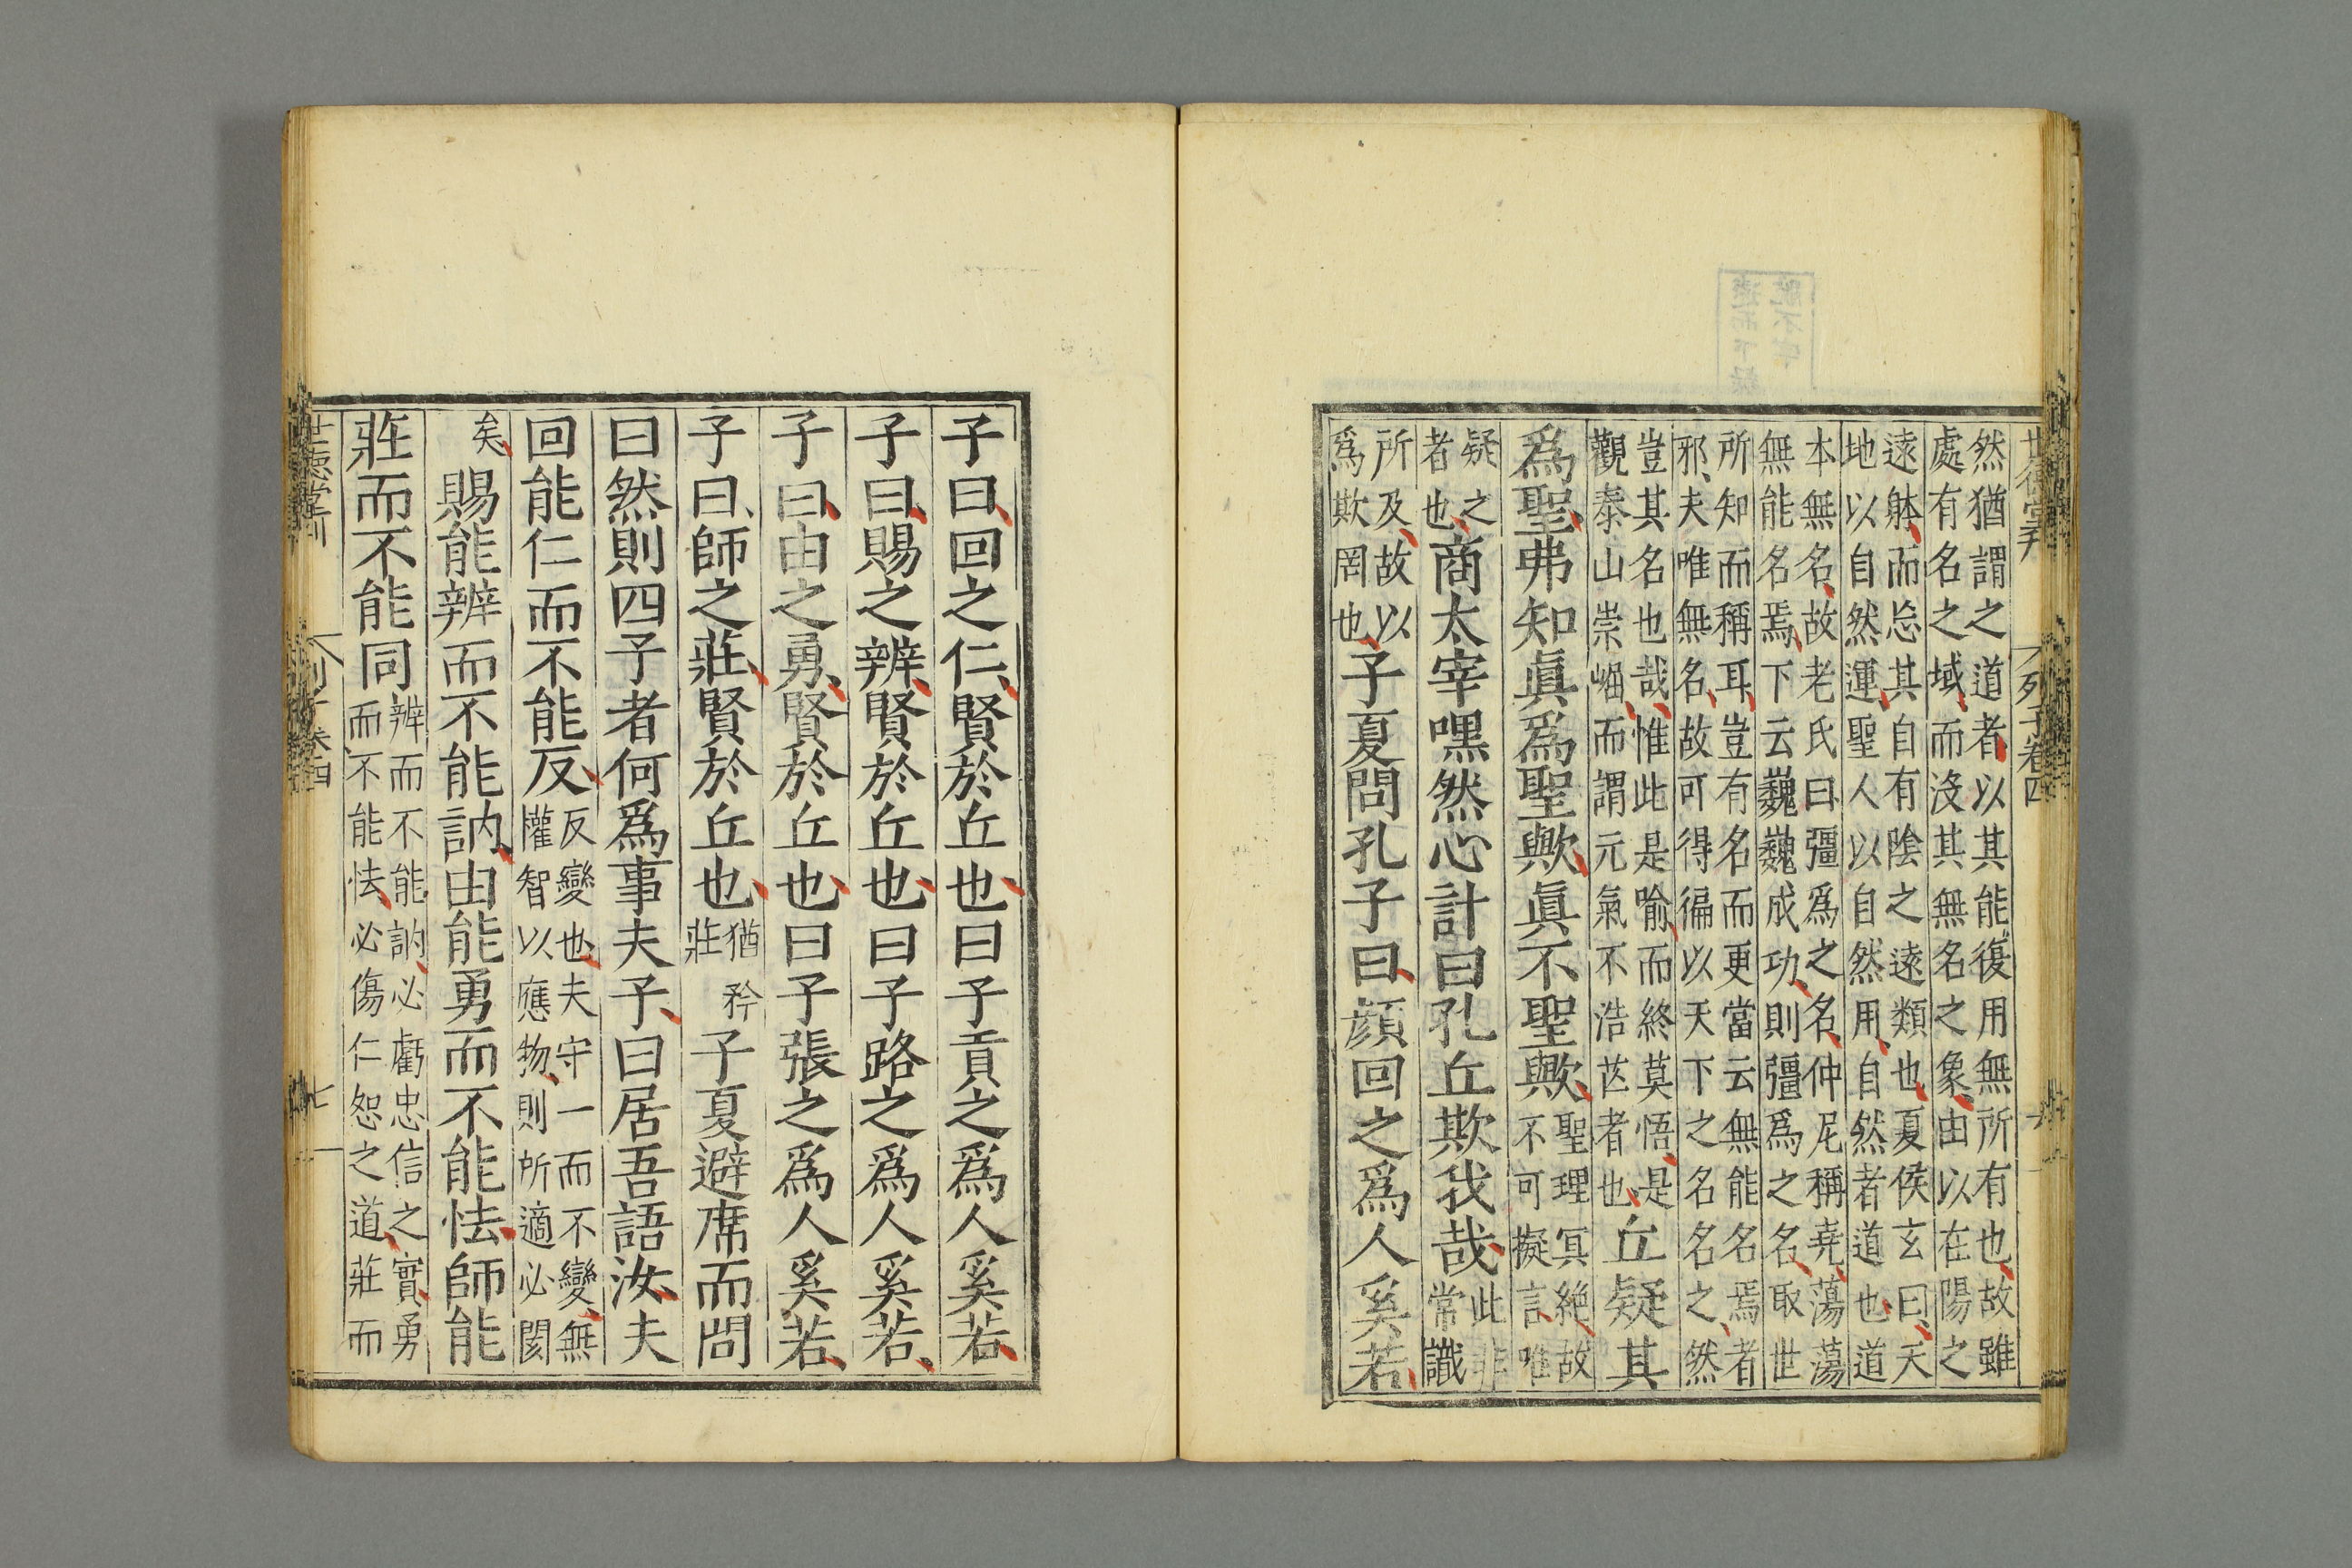 世德堂刊 列子卷四 六
然猶謂之道者以其能復用無所有也故雖
處有名之域而没其無名之象由以在陽之
遠躰而忘其自有陰之遠類也夏侯玄曰天
地以自然運聖人以自然用自然者道也道
本無名故老氏曰彊爲之名仲尼稱堯蕩蕩
無能名焉下云巍巍成功則彊爲之名取世
所知而稱耳豈有名而更當云無能名焉者
邪夫唯無名故可得徧以天下之名名之然
豈其名也哉惟此是喻而終莫悟是
觀泰山崇崛而謂元氣不浩芒者也
丘疑其
爲聖弗知眞爲聖歟眞不聖歟
聖理冥絶故
不可擬言唯
疑之
者也
商太宰嘿然心計曰孔丘欺我哉
此非
常識
所及故以
爲欺罔也
子夏問孔子曰顔回之爲人奚若
子曰回之仁賢於丘也曰子貢之爲人奚若
子曰賜之辨賢於丘也曰子路之爲人奚若
子曰由之勇賢於丘也曰子張之爲人奚若
子曰師之莊賢於丘也
猶矜
莊
子夏避席而問
曰然則四子者何爲事夫子曰居吾語汝夫
回能仁而不能反
反變也夫守一而不變無
權智以應物則所適必閡
矣
賜能辨而不能訥由能勇而不能怯師能
莊而不能同
辨而不能訥必虧忠信之實勇
而不能怯必傷仁恕之道莊而
世德堂刊 列子卷四 七